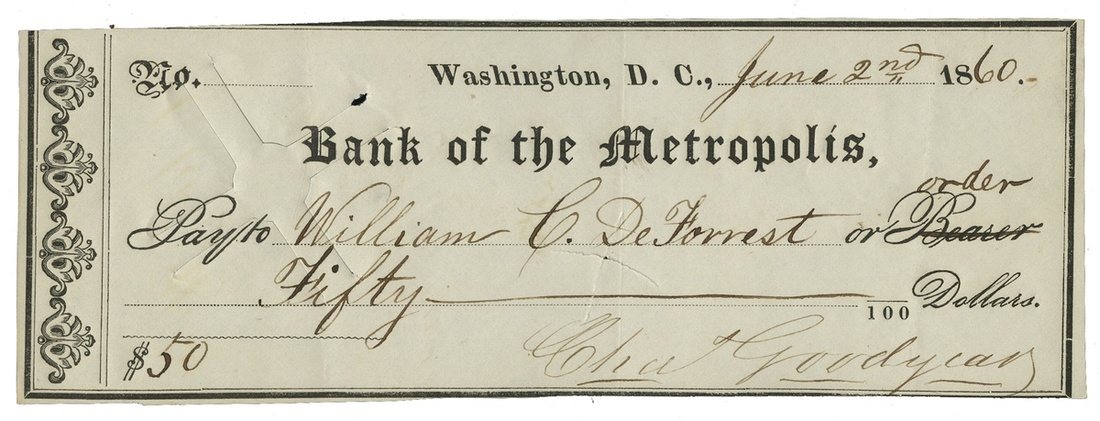 No. Washington, D. C., June 2nd 1860.
Bank of the Metropolis,
order
Pay to William C. DeForrest or Bearer
Fifty /100 Dollars.
$50 Chas Goodyear